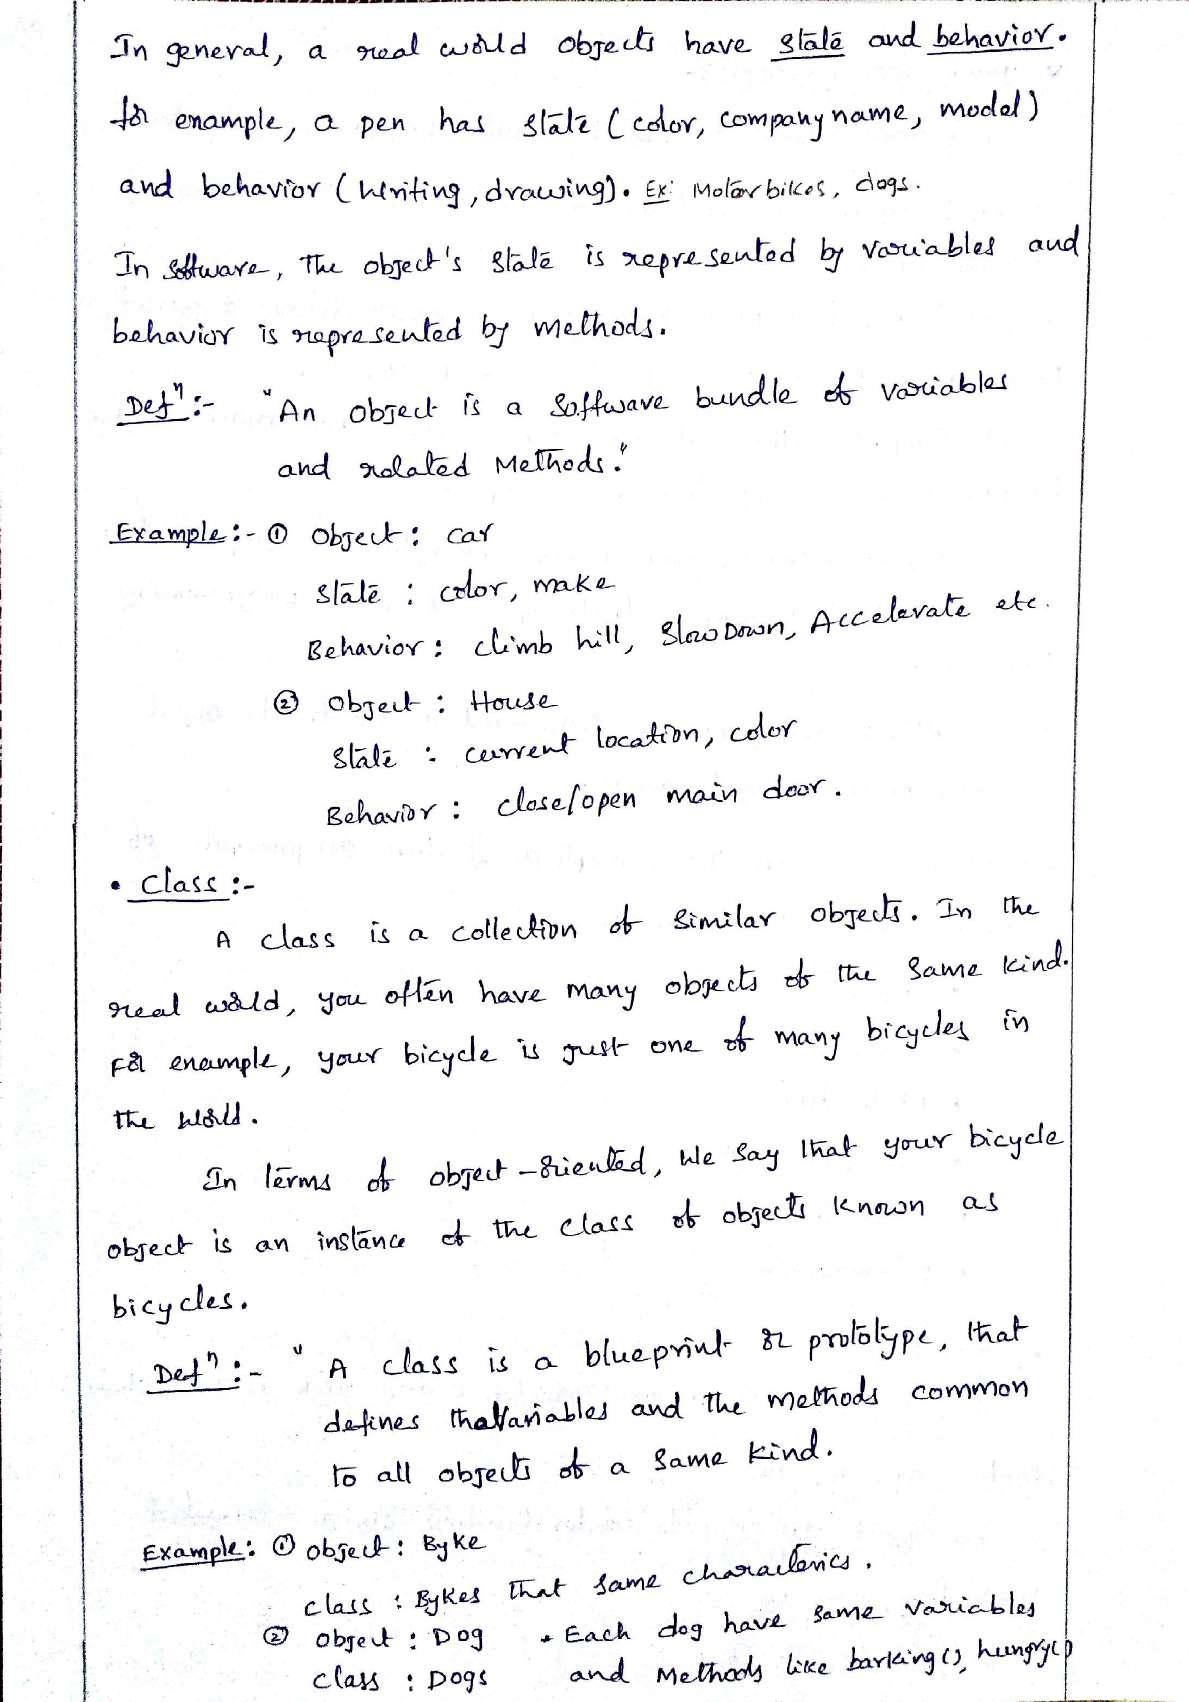 In general, a real world objects have state and behavior.
for example, a pen has state (color, company name, model)
and behavior (writing, drawing). Ex: Motorbikes, dogs.
In software, the object's state is represented by variables and
behavior is represented by methods.
Defⁿ:- "An object is a software bundle of variables
and related Methods."
Example:- ① Object: car
State : color, make
Behavior: climb hill, SlowDown, Accelerate etc.
② Object : House
State : current location, color
Behavior : close/open main door.
• Class :-
A class is a collection of similar objects. In the
real world, you often have many objects of the same kind.
For example, your bicycle is just one of many bicycles in
the world.
In terms of object-oriented, we say that your bicycle
object is an instance of the class of objects known as
bicycles.
Defⁿ :- " A class is a blueprint or prototype, that
defines the Variables and the methods common
to all objects of a same kind.
Example: ① object: Byke
class : Bykes that same characterics.
② object : Dog * Each dog have same variables
class : Dogs and Methods like barking(), hungry()